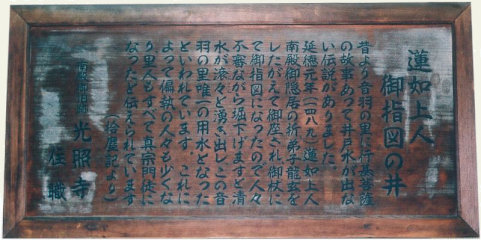 蓮如上人
御指図の井
昔より音羽の里に行基菩薩
の故事あつて井戸水が出な
い伝説がありました。
延徳元年(一四八九)蓮如上人
南殿御隠居の折弟子龍玄を
したがえて御座され御杖に
て御指図になったので人々
不審ながら堀下げますと清
水が滾々と湧き出しこの音
羽の里唯一の用水となった
といわれています。これに
よって偏執の人々も少くな
り里人もすべて真宗門徒に
なったと伝えられています
(谷屋記より)
光照寺
住職